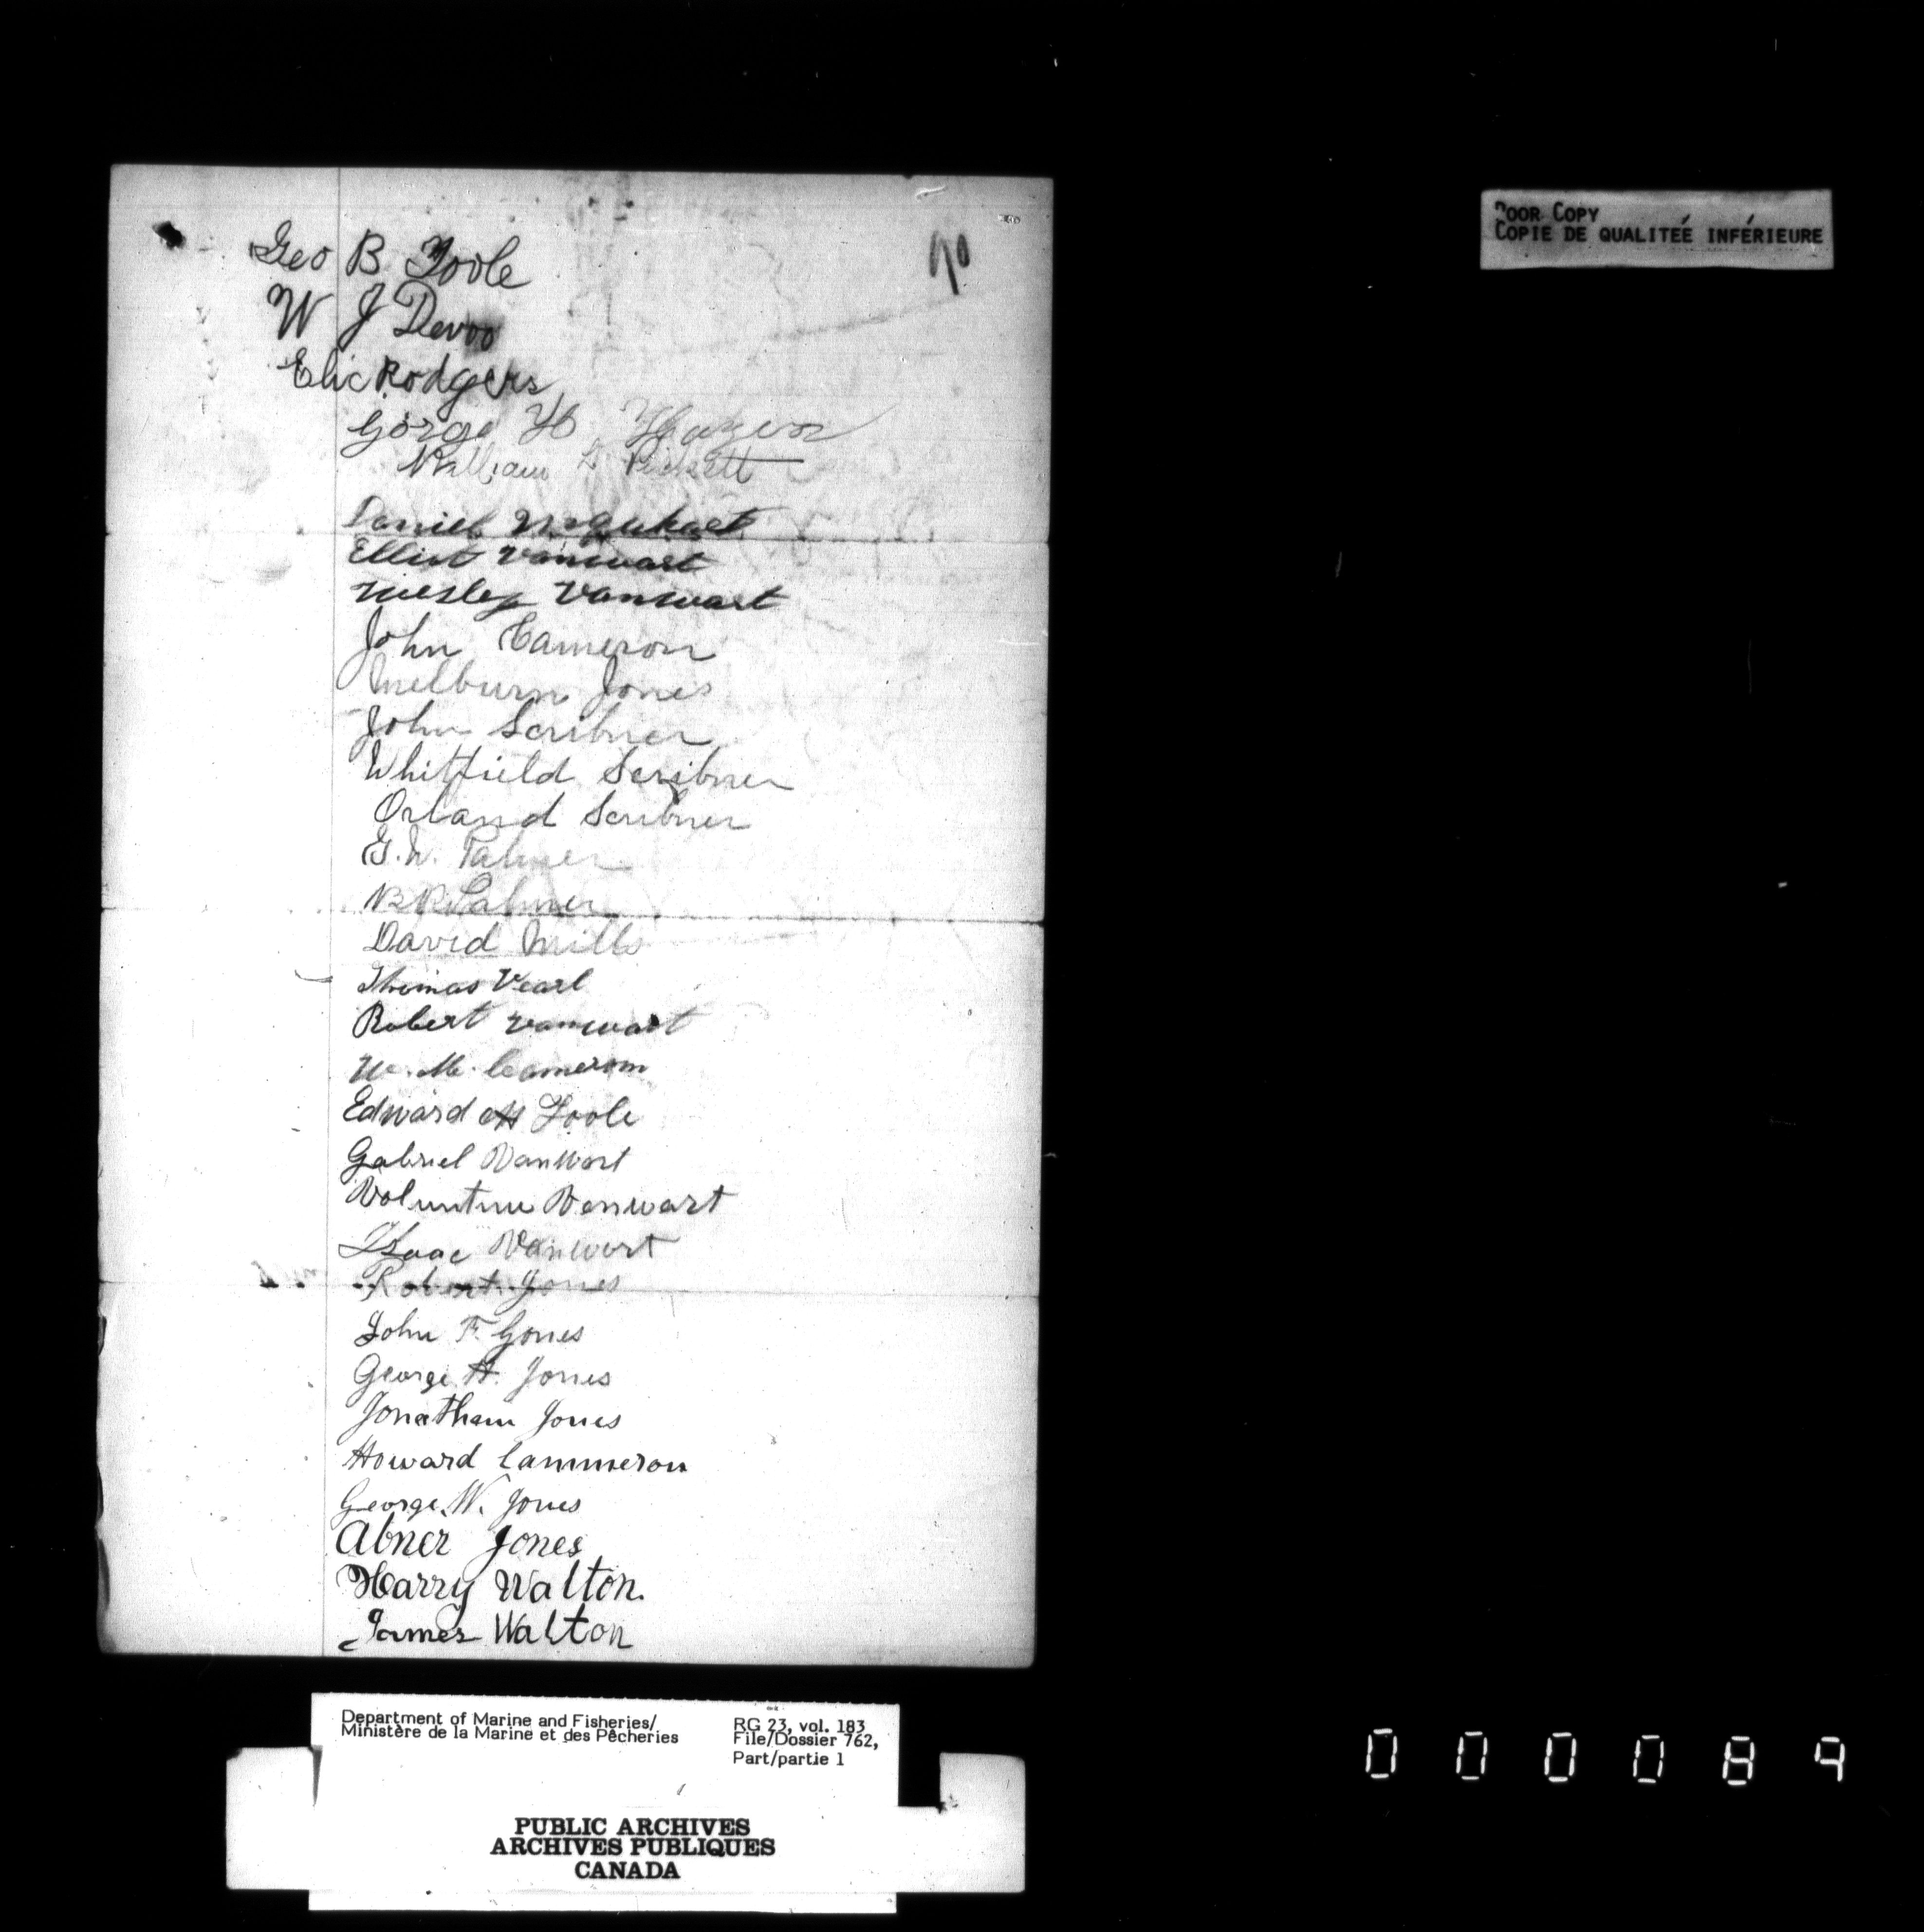 90
POOR COPY
COPIE DE QUALITEÉ INFÉRIEURE
Geo B Toole
W J Devoo
Elic Rodgers
Gorge H Hazen
William D Pickett
Daniel Urquhart
Elliot Vanwart
Wesley Vanwart
John Cameron
Melburn Jones
John Scribner
Whitfield Scribner
Orland Scribner
G. W. Palmer
B R Palmer
David Mills
Thomas Vearl
Robert Vanwart
W. M. Cameron
Edward H Toole
Gabriel VanWort
Voluntine Vanwart
Isaac Vanwort
Robert Jones
John F. Jones
George H. Jones
Jonathan Jones
Howard Cammeron
George W. Jones
Abner Jones
Harry Walton.
James Walton
Department of Marine and Fisheries/
Ministère de la Marine et des Pêcheries
RG 23, vol. 183
File/Dossier 762,
Part/partie 1
PUBLIC ARCHIVES
ARCHIVES PUBLIQUES
CANADA
000089